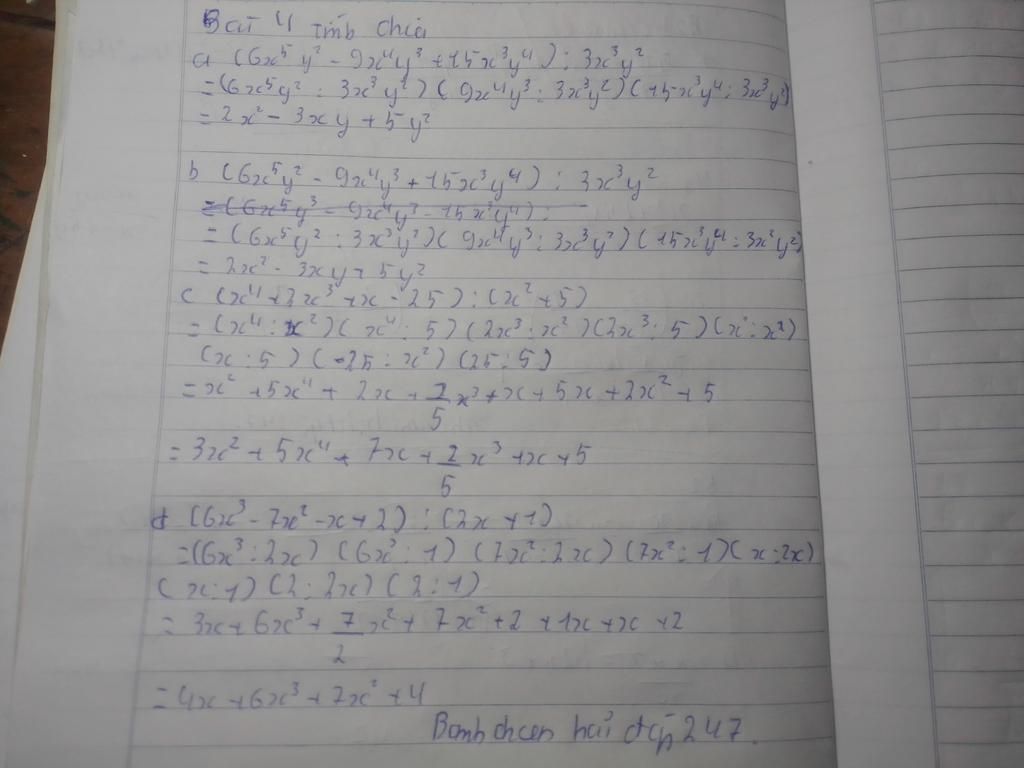 Bài 4 tính chia
a (6x⁵y² - 9x⁴y³ + 15x³y⁴) : 3x³y²
= (6x⁵y² : 3x³y²) (9x⁴y³ : 3x³y²) (+15x³y⁴ : 3x³y²)
= 2x² - 3xy + 5y²
b (6x⁵y² - 9x⁴y³ + 15x³y⁴) : 3x³y²
= (6x⁵y³ - 9x⁴y³ - 15x³y⁴) :
= (6x⁵y² : 3x³y²) (9x⁴y³ : 3x³y²) (15x³y⁴ : 3x³y²)
= 2x² - 3xy + 5y²
c (x⁴ + 2x³ + x - 25) : (x² + 5)
= (x⁴ : x²) (x⁴ : 5) (2x³ : x²) (2x³ : 5) (x : x²)
(x : 5) (-25 : x²) (25 : 5)
= x² + 5x⁴ + 2x + 2/5 x³ + x + 5x + 2x² + 5
= 3x² + 5x⁴ + 7x + 2/5 x³ + x + 5
d (6x³ - 7x² - x + 2) : (2x + 1)
= (6x³ : 2x) (6x³ : 1) (7x² : 2x) (7x² : 1) (x : 2x)
(x : 1) (2 : 2x) (2 : 1)
= 3x + 6x³ + 7/2 x² + 7x² + 2 + 1x + x + 2
= 4x + 6x³ + 7x² + 4
247.